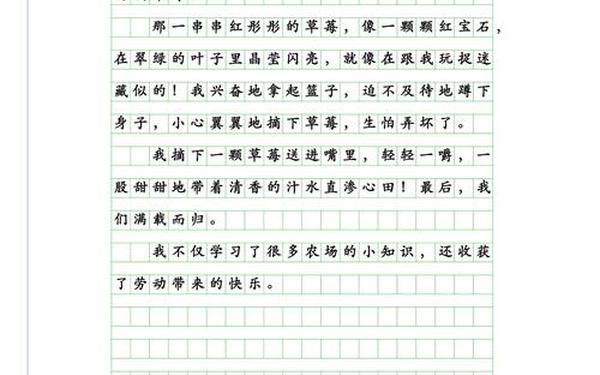 那一串串红彤彤的草莓，像一颗颗红宝石，
在翠绿的叶子里晶莹闪亮，就像在跟我玩捉迷
藏似的！我兴奋地拿起篮子，迫不及待地蹲下
身子，小心翼翼地摘下草莓，生怕弄坏了。
我摘下一颗草莓送进嘴里，轻轻一嚼，一
股甜甜地带着清香的汁水直渗心田！最后，我
们满载而归。
我不仅学习了很多农场的小知识，还收获
了劳动带来的快乐。